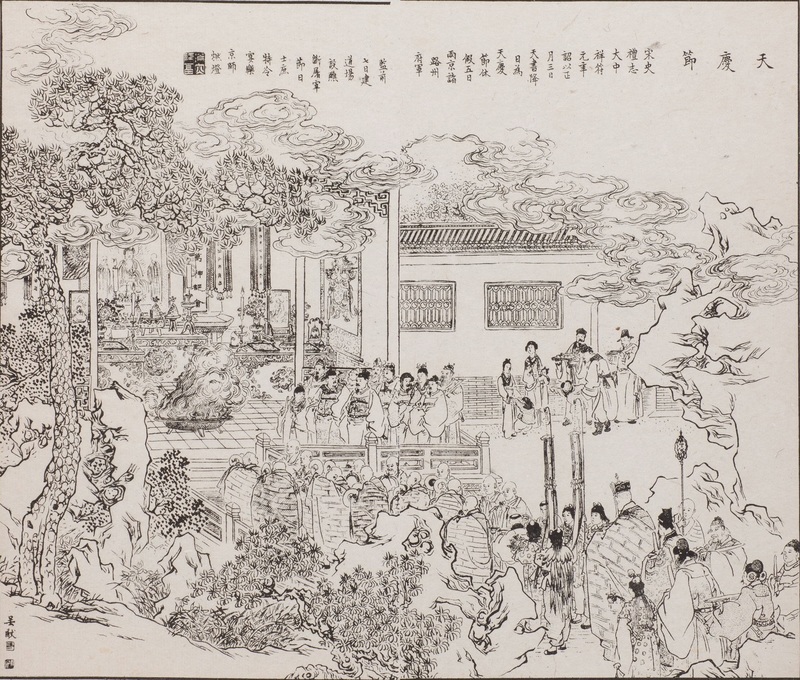 天慶節
宋史
禮志
大中
祥符
元年
詔以正
月三日
天書降
日為
天慶
節休
假五日
兩京諸
路州
府軍
監前
七日建
道場
設醮
斷屠宰
節日
士庶
特令
宴樂
京師
燃燈
吴猷